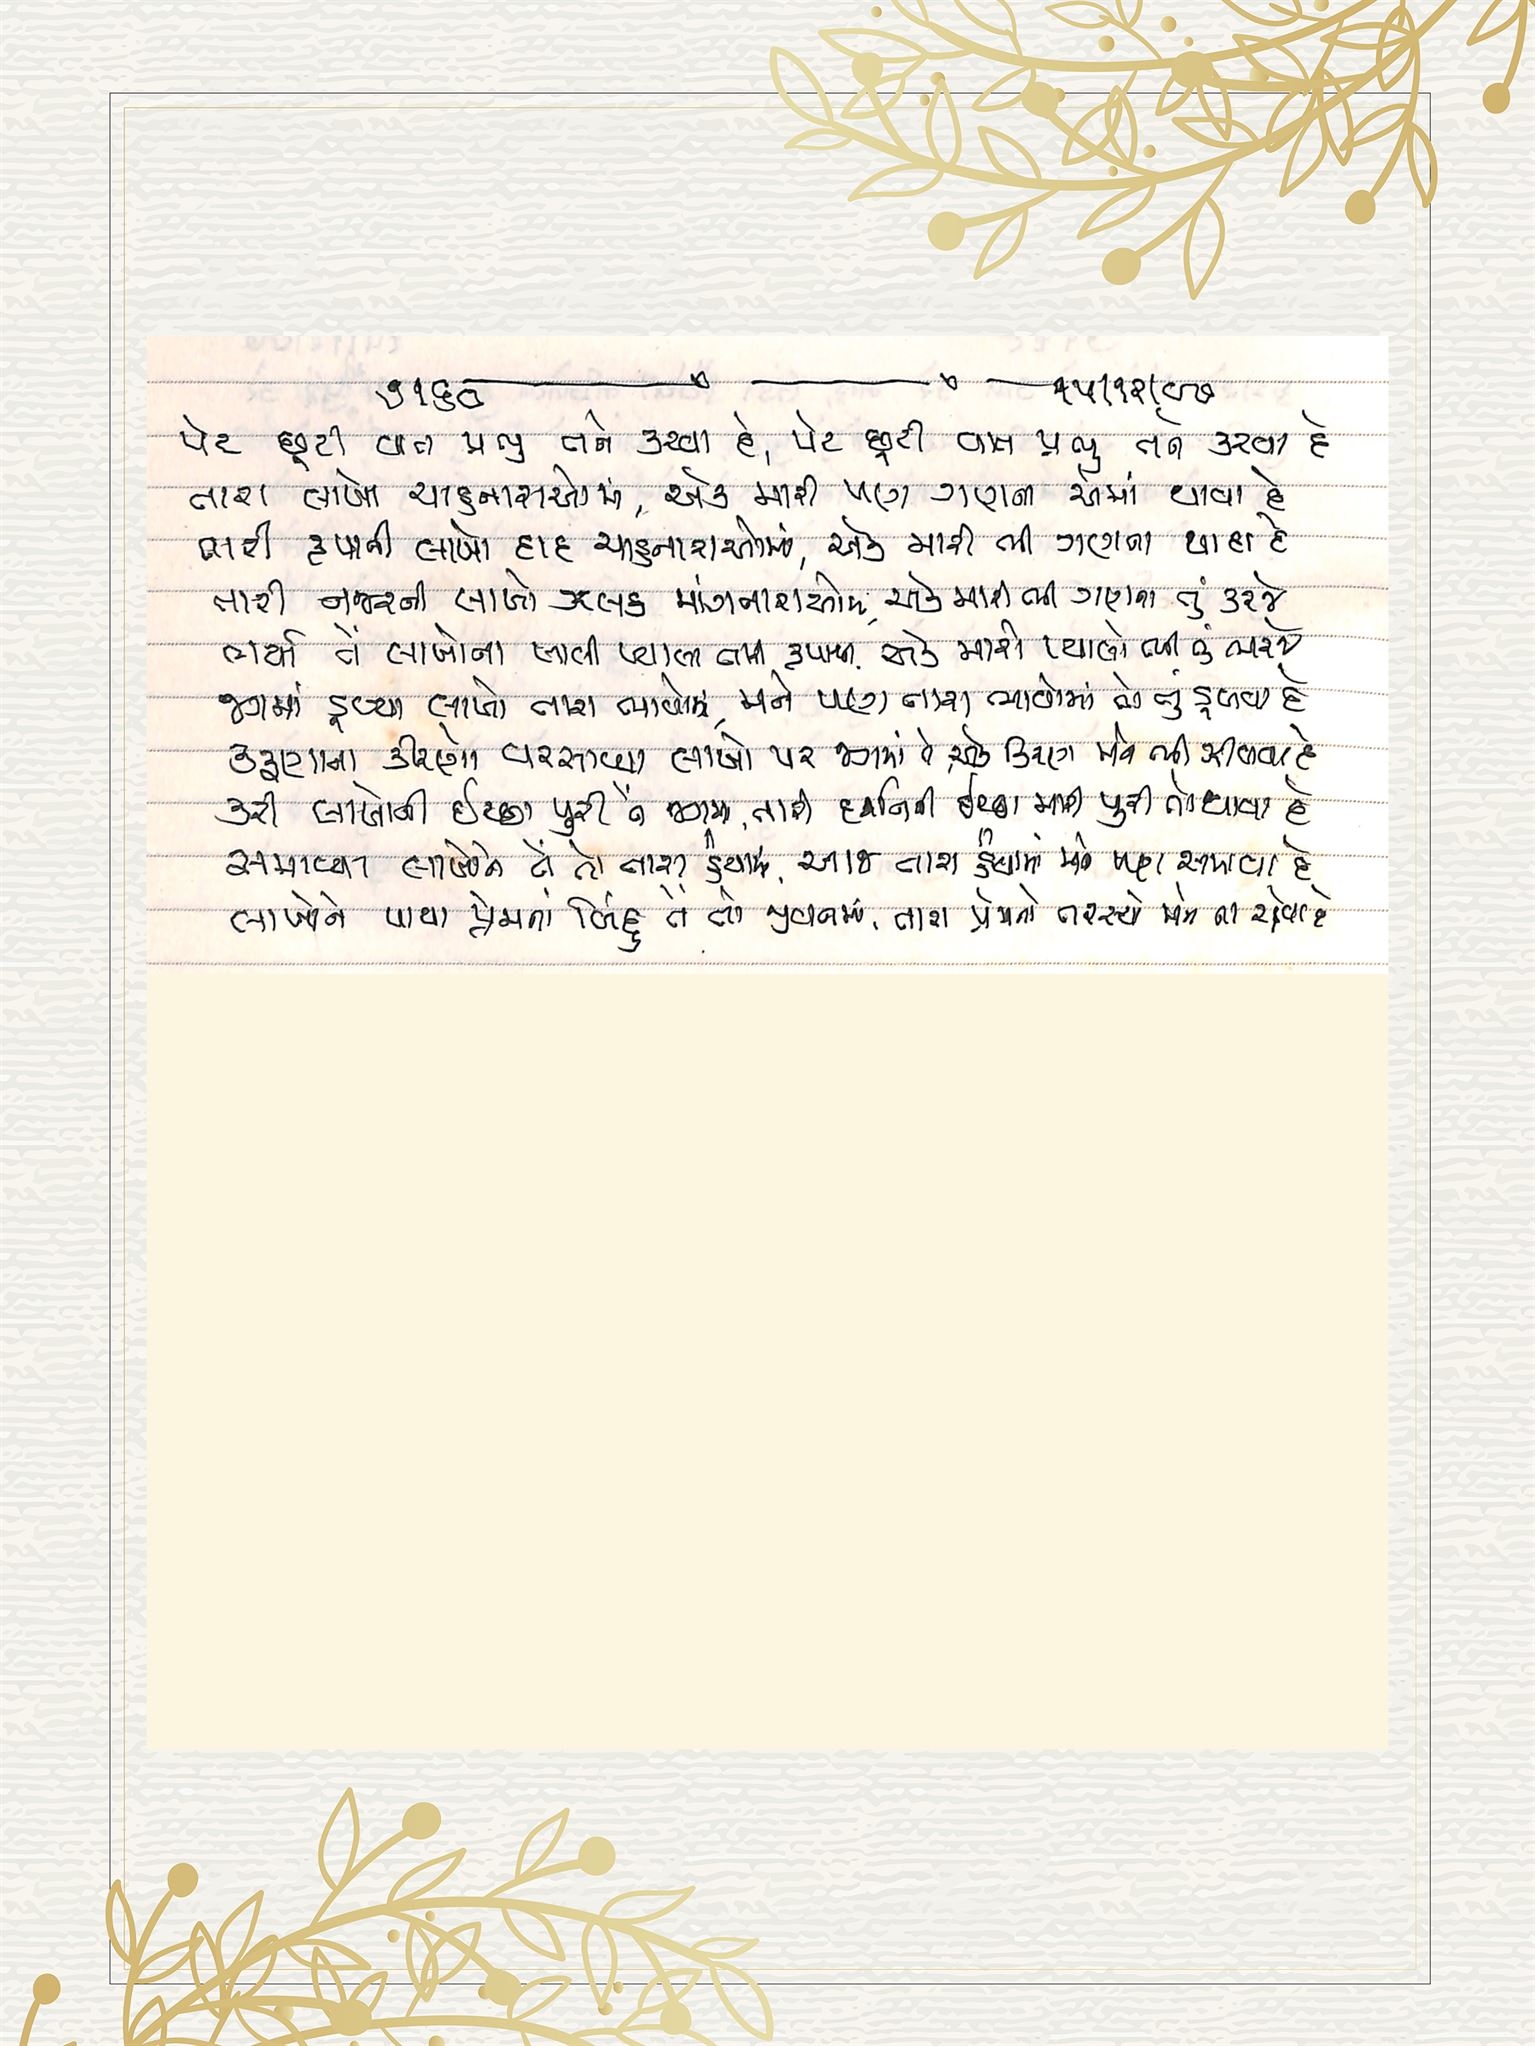 ૭૧૬૦ ૧૫/૧૨/૯૭
પેટ છૂટી વાત પ્રભુ તને કરવા દે, પેટ છૂટી વાત પ્રભુ તને કરવા દે
તારા લાખો ચાહનારાઓમાં, એક મારી પણ ગણના એમાં થાવા દે
તારી કૃપાની લાખો દાદ ચાહનારાઓમાં, એક મારી ભી ગણના થાવા દે
તારી નજરની લાખો ઝલક માંગનારાઓમાં, એક મારી ભી ગણના તું કરજે
ભર્યા તેં લાખોના ખાલી પ્યાલા તારી કૃપાથી, એક મારી પ્યાલો ભી તું ભરજે
જગમાં ડૂબ્યા લાખો તારા ભાવોમાં, મને પણ તારા ભાવોમાં તો તું ડૂબવા દે
કરુણાના કીરણો વરસાવ્યા લાખો પર જગમાં તેં, એક કિરણ મને ભી ઝીલવા દે
કરી લાખોની ઈચ્છા પુરી તેં જગમાં, તારી દર્શનની ઈચ્છા મારી પુરી તો થાવા દે
સમાવ્યા લાખોને તેં તો તારા હૈયામાં, આજ તારા હૈયામાં મને પણ સમાવા દે
લાખોને પાયા પ્રેમનાં બિંદુ તેં તો જીવનમાં, તારા પ્રેમનો તરસ્યો મને ના રહેવા દે